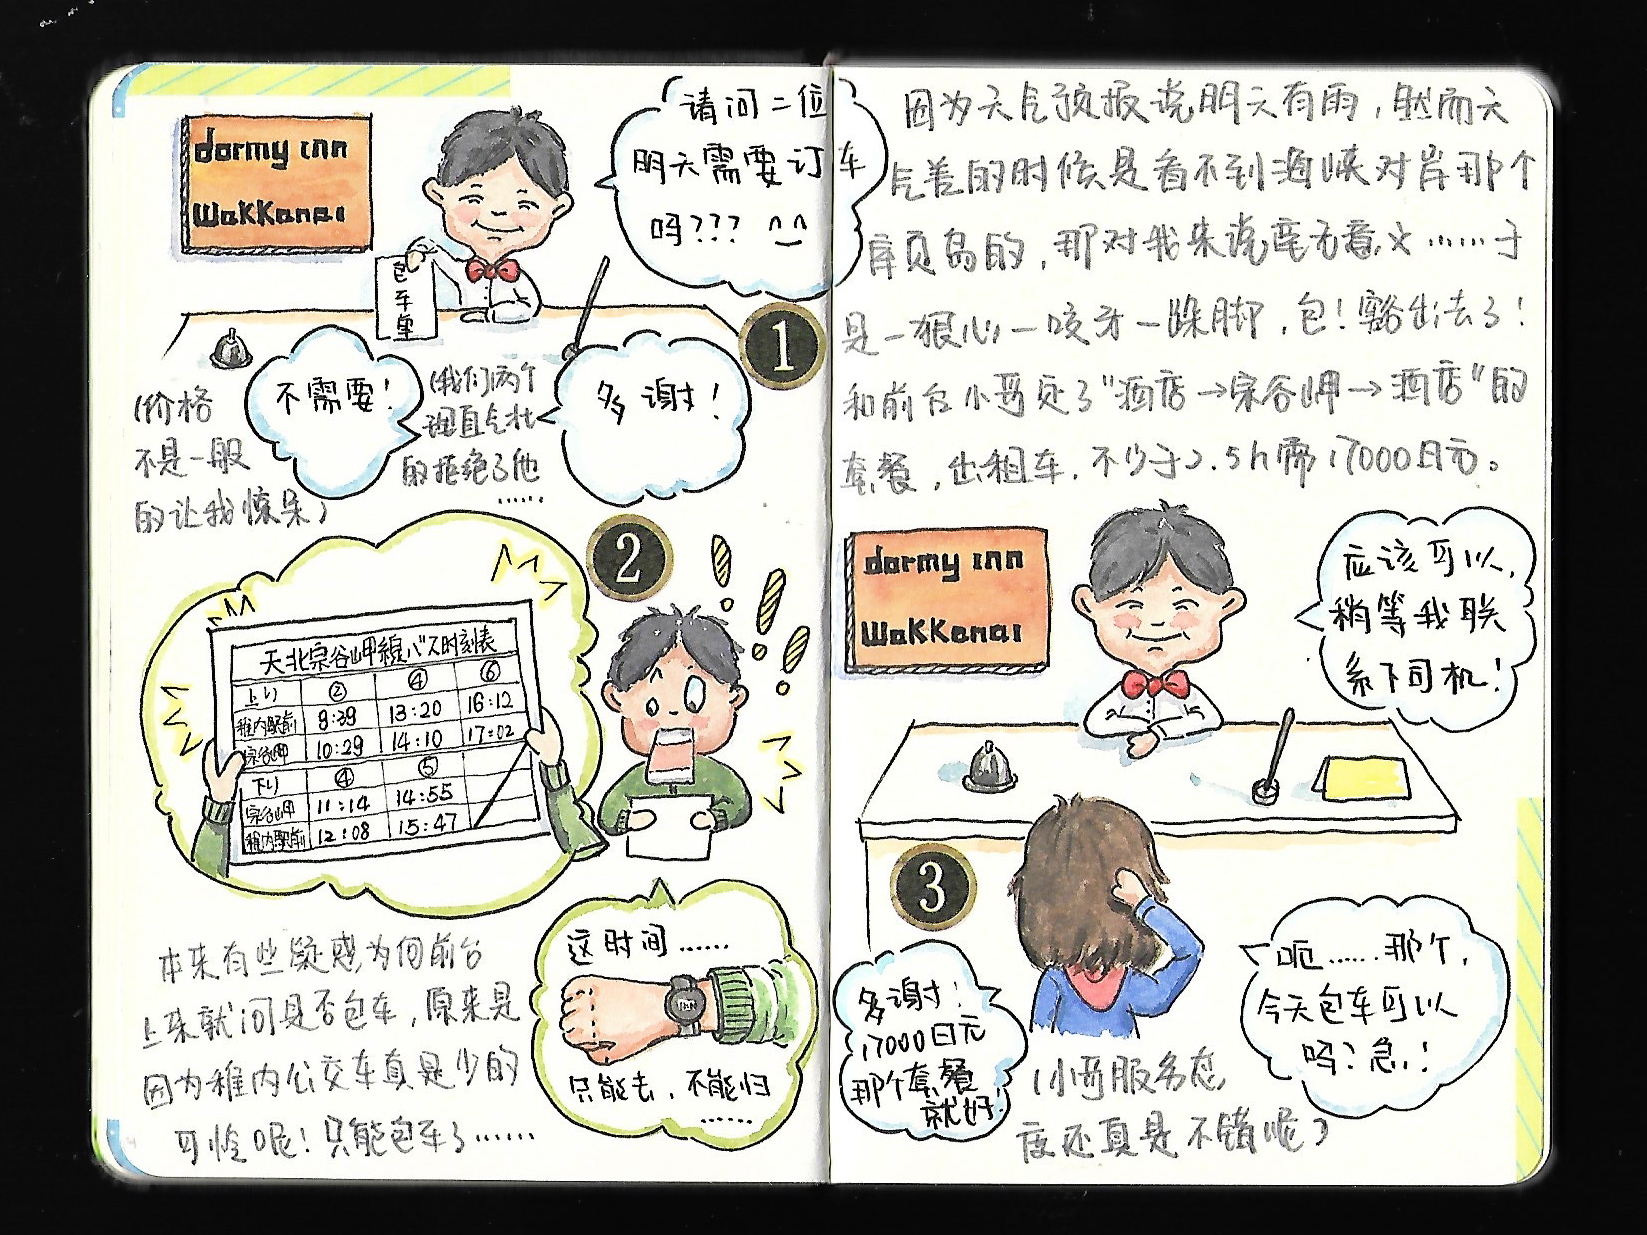 dormy inn
Wakkanai
请问二位
明天需要订车
吗??? ^^
包车单
1
(价格
不是一般
的让我惊呆)
不需要!
(我们两个
理直气壮
的拒绝了他
……
多谢!
2
天北宗谷岬線バス时刻表
上り ② ④ ⑥
稚内駅前 9:39 13:20 16:12
宗谷岬 10:29 14:10 17:02
下り ④ ⑤
宗谷岬 11:14 14:55
稚内駅前 12:08 15:47
本来有些疑惑为何前台
上来就问是否包车,原来是
因为稚内公交车真是少的
可怜呢!只能包车了……
这时间……
只能去,不能归
……
因为天气预报说明天有雨,然而天
气差的时候是看不到海峡对岸那个
库页岛的,那对我来说毫无意义……于
是一狠心一咬牙一跺脚,包!豁出去了!
和前台小哥定了"酒店→宗谷岬→酒店"的
套餐,出租车,不少于2.5h需17000日元。
dormy inn
Wakkanai
应该可以,
稍等我联
系下司机!
3
呃……那个,
今天包车可以
吗?急!
多谢!
17000日元
那个套餐
就好!
(小哥服务态
度还真是不错呢)